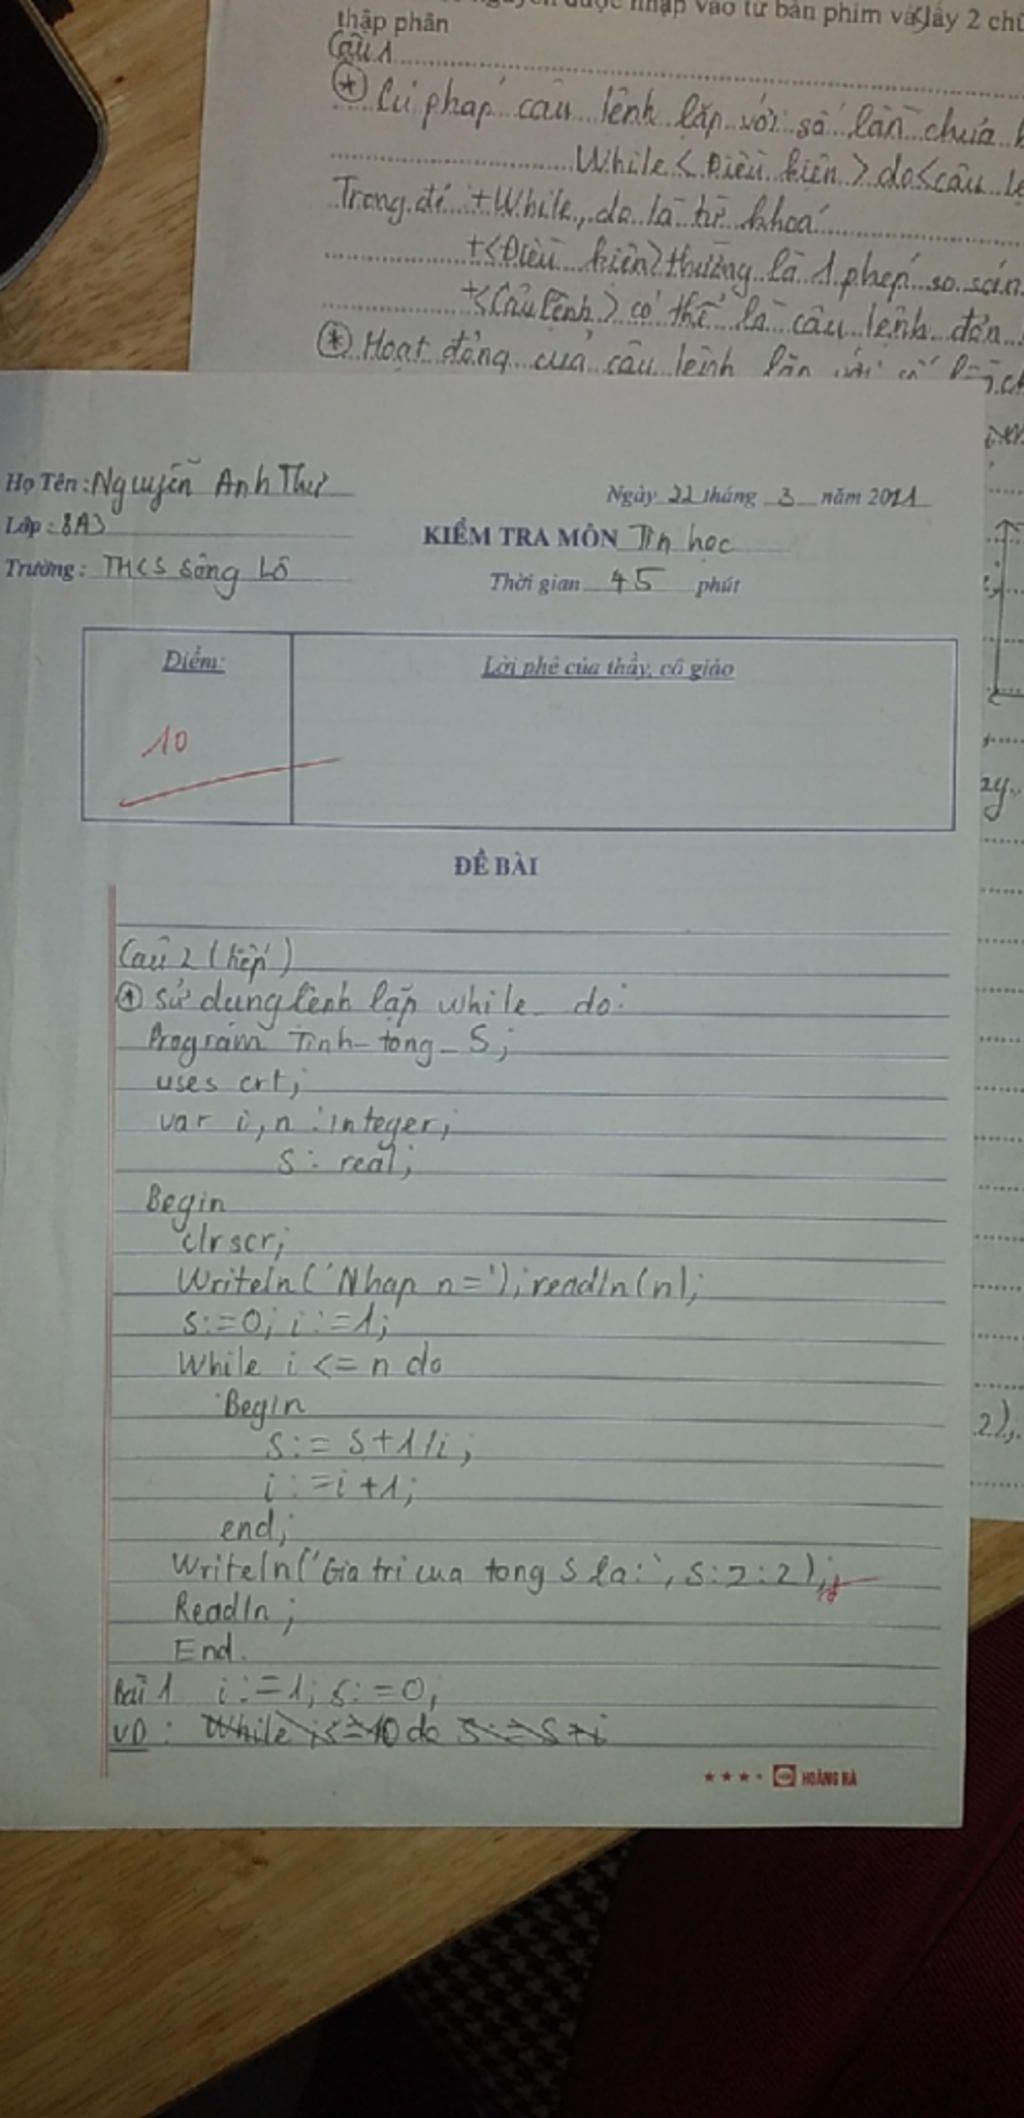 được nhập vào từ bàn phím và lấy 2 chữ
thập phân
Câu 1
* Cú pháp câu lệnh lặp với số lần chưa
While < Điều kiện > do < câu
Trong đó + While, do là từ khoá
+ < Điều kiện > thường là 1 phép so
+ < Câu lệnh > có thể là câu lệnh đơn
* Hoạt động của câu lệnh lặp với số
Họ Tên: Nguyễn Anh Thư
Ngày 22 tháng 3 năm 2021
Lớp: 8A3
KIỂM TRA MÔN Tin học
Trường: THCS Sông Lô
Thời gian 45 phút
Điểm:
Lời phê của thầy, cô giáo
10
ĐỀ BÀI
Câu 2 (tiếp)
* Sử dụng lệnh lặp while do:
Program Tinh_tong_S;
uses crt;
var i,n : integer;
s : real;
Begin
clrscr;
Writeln('Nhap n='); readln(n);
s:=0; i:=1;
While i <= n do
Begin
s:= s+1/i;
i:=i+1;
end;
Writeln('Gia tri cua tong S la:', s:2:2);
Readln;
End.
Bài 1 i:=1; s:=0;
VD: While i<=10 do s:=s+i
HOÀNG HÀ
2y
2),